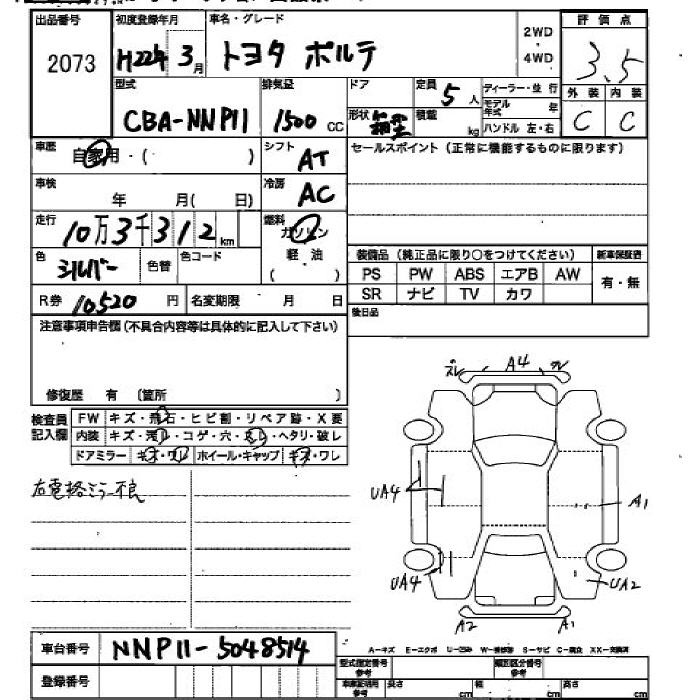 出品番号 初度登録年月 車名・グレード 評価点
2073 H22年 3月 トヨタ ポルテ 2WD 4WD 3.5
型式 排気量 ドア 定員 5人 ディーラー・並行 外装 内装
CBA-NNP11 1500 CC 形状 箱型 積載 kg モデル年式 年 ハンドル 左・右 C C
車歴 自家用・( ) シフト AT セールスポイント(正常に機能するものに限ります)
車検 年 月( 日) 冷房 AC
走行 10万3千312km 燃料 ガソリン
色 シルバー 色替 色コード 軽油 ( ) 装備品(純正品に限り○をつけてください) 新車保証書
PS PW ABS エアB AW 有・無
R券 10520円 名変期限 月 日 SR ナビ TV カワ
注意事項申告欄(不具合内容等は具体的に記入して下さい) 後日品
修復歴 有 (箇所 )
検査員記入欄 FW キズ・飛石・ヒビ割・リペア跡・X要
内装 キズ・汚レ・コゲ・穴・スレ・ヘタリ・破レ
ドアミラー キズ・ワレ ホイール・キャップ キズ・ワレ
右電格ミラー不良
ズレ A4 ズレ
UA4 A1
UA4 UA2
A2 A1
車台番号 NNP11-5048514
A-キズ E-エクボ U-凹み W-補修跡 S-サビ C-腐食 XX-交換済
登録番号 型式指定番号 参考 類別区分番号 参考
車車証明用 参考 長さ cm 幅 cm 高さ cm